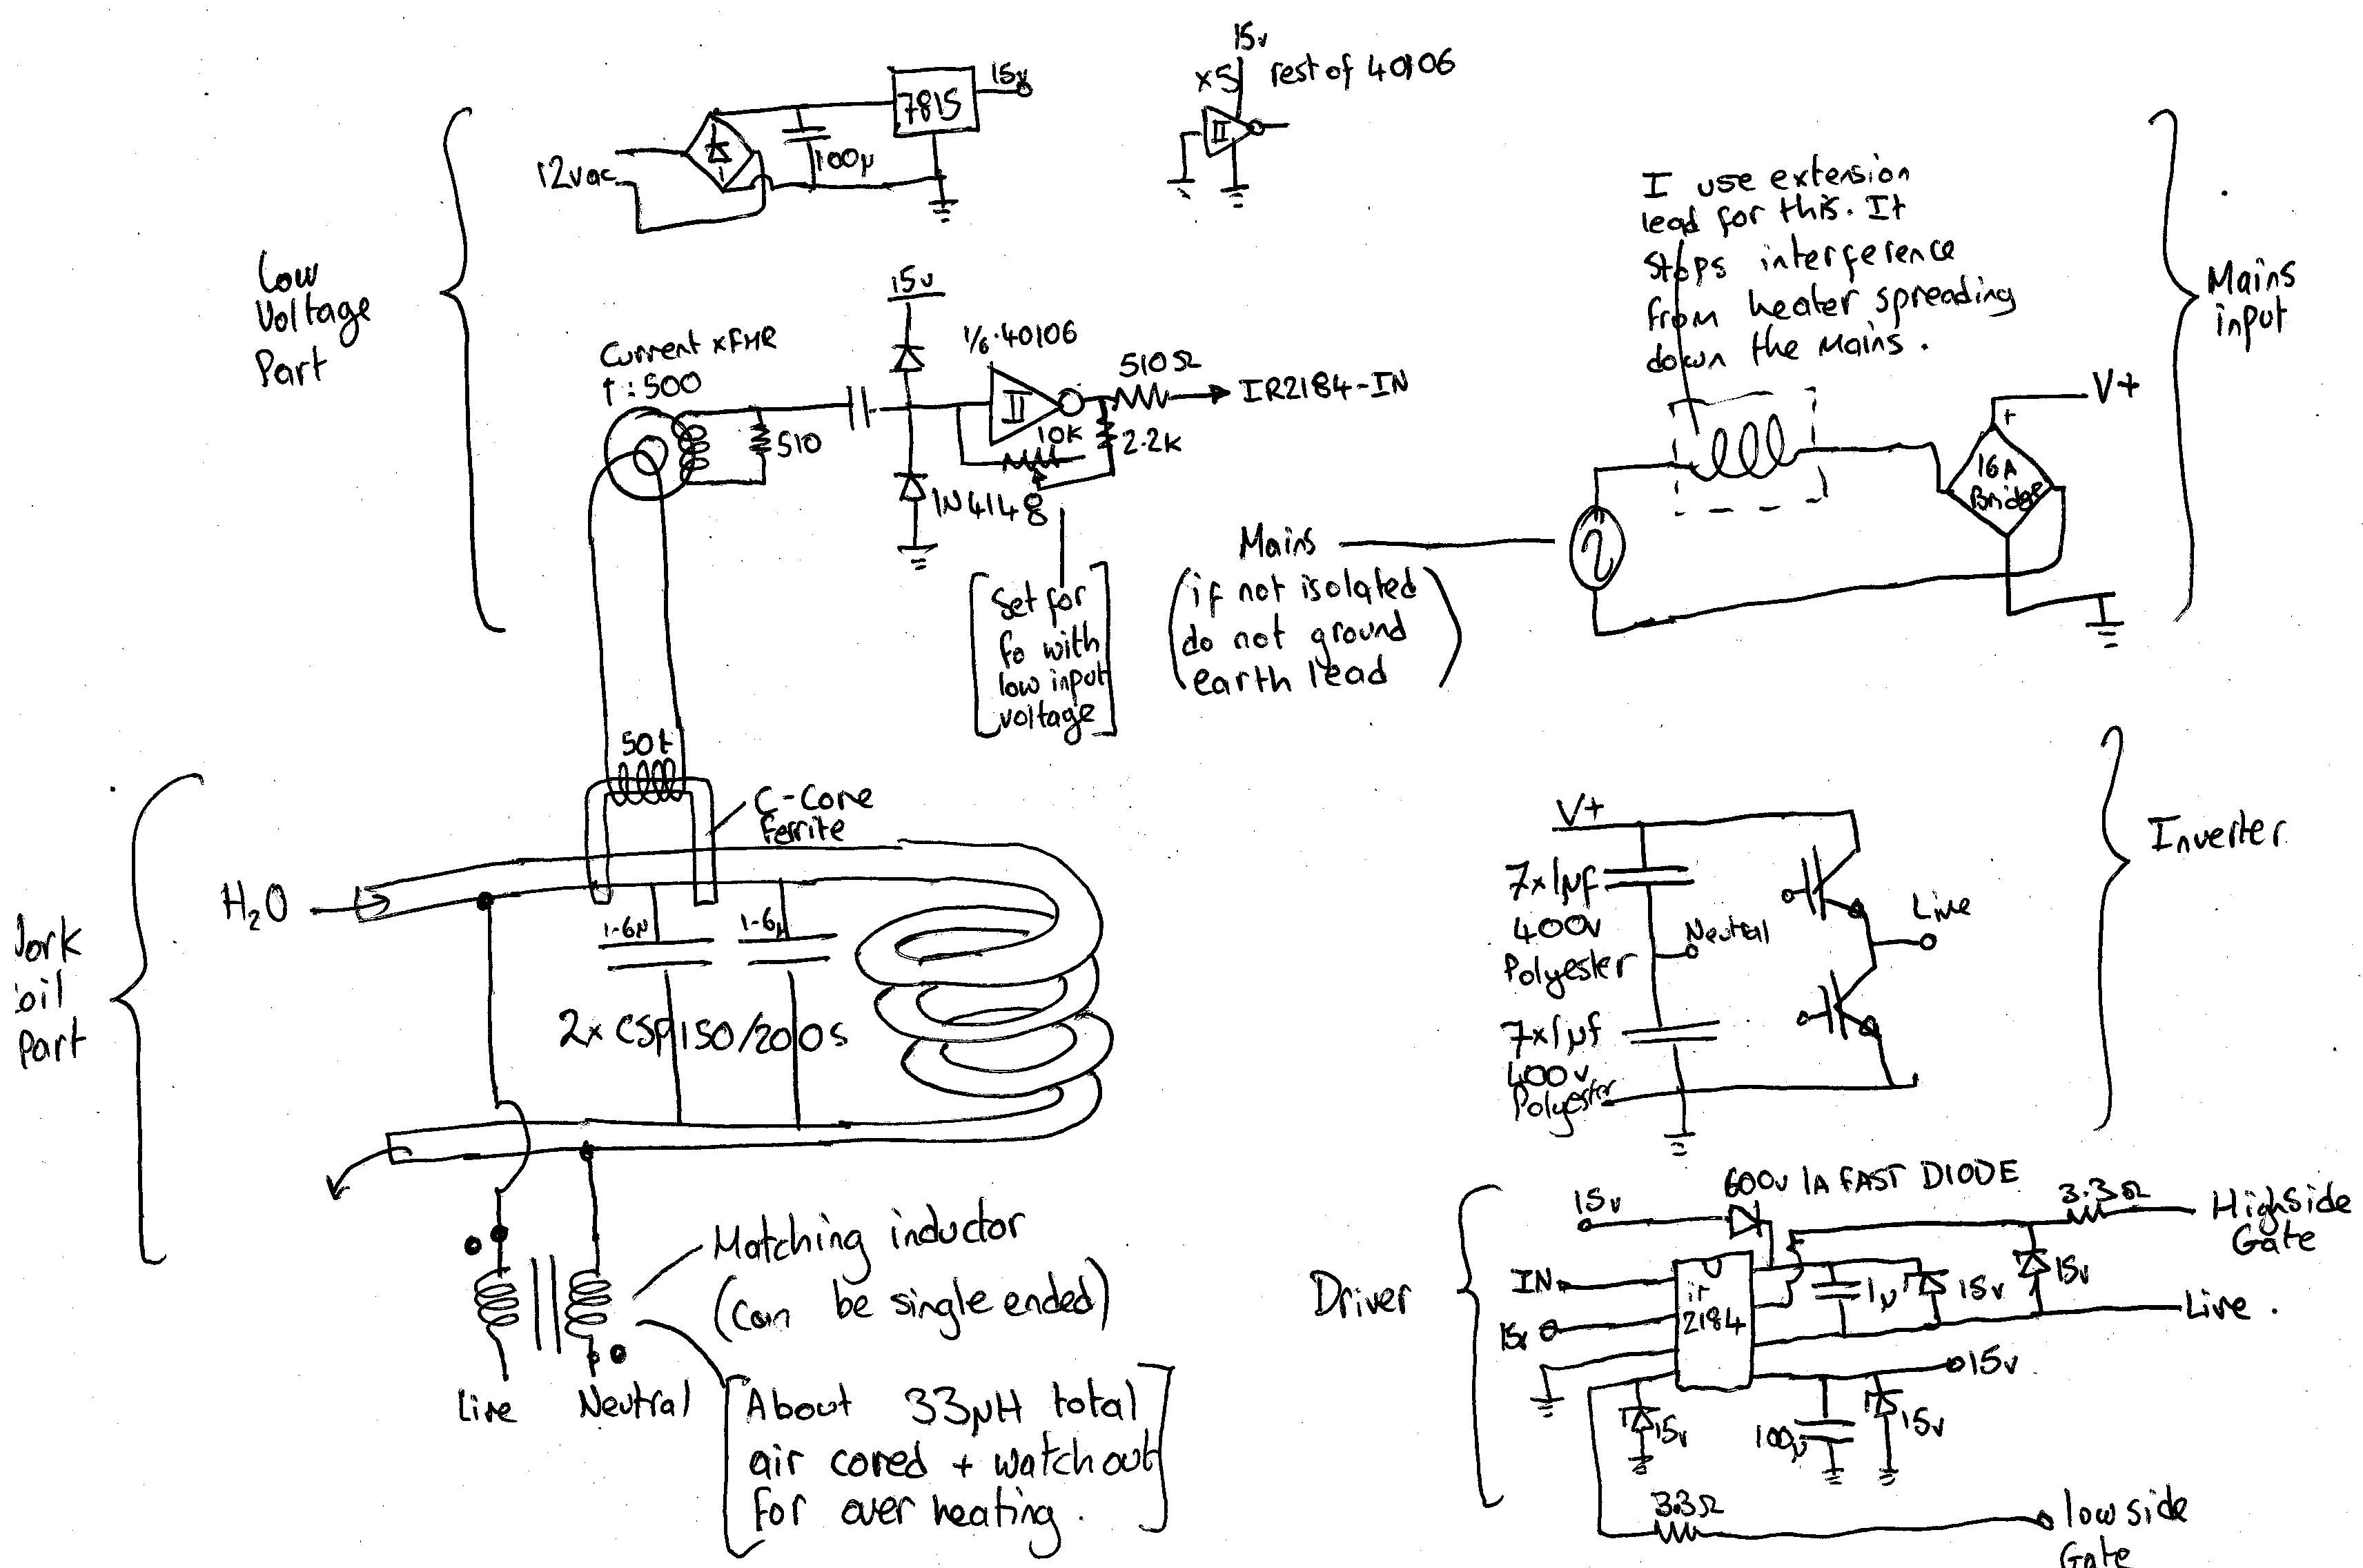 Low
Voltage
Part
12vac
100µ
7815
15v
15v
x5
rest of 40106
Current xFMR
1:500
510
15v
1N4148
1/6 40106
10K
510Ω
2.2K
IR2184-IN
[Set for
fo with
low input
voltage]
I use extension
lead for this. It
stops interference
from heater spreading
down the mains.
Mains
input
V+
+
16A
Bridge
Mains
(if not isolated
do not ground
earth lead)
50t
C-Core
ferrite
H2O
1-6µ
1-6µ
2x CSP150/200s
ork
oil
Part
Matching inductor
(can be single ended)
Live
Neutral
[About 33µH total
air cored + watch out
for over heating.]
V+
7x1µf
400v
Polyester
Neutral
7x1µf
400v
Polyester
Live
Inverter
Driver
15v
600v 1A FAST DIODE
3.3Ω
Highside
Gate
IN
15v
ir
2184
1µ
15v
15v
Live.
15v
15v
100µ
15v
3.3Ω
low side
Gate